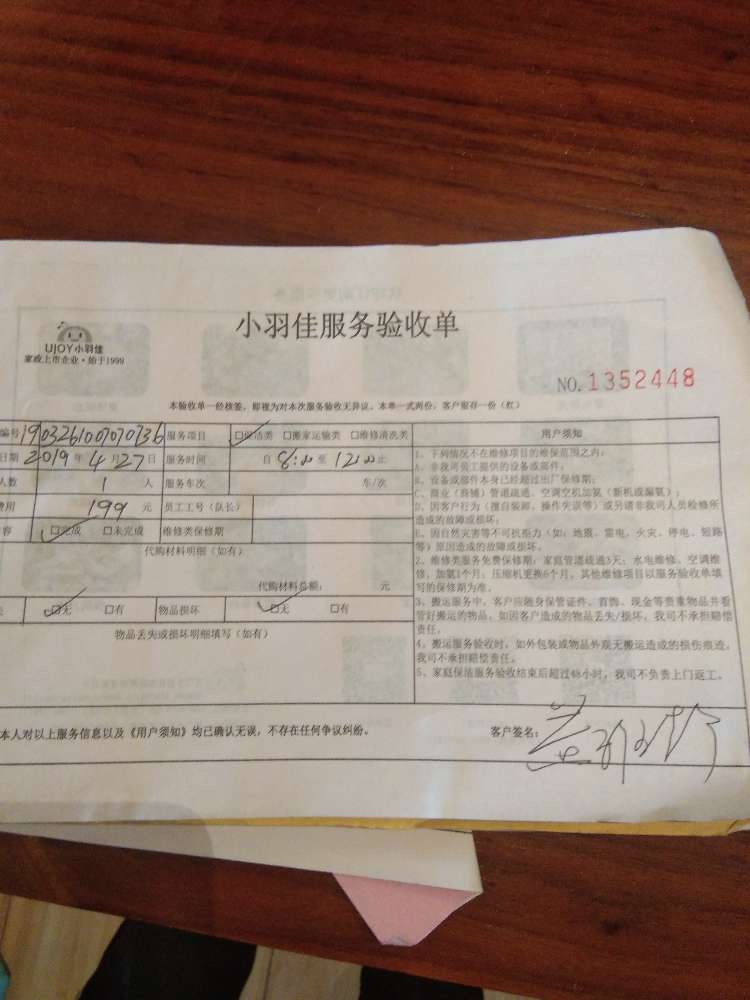 小羽佳服务验收单
UJOY小羽佳
家政上市企业·始于1999
NO. 1352448
本验收单一经核签，即视为对本次服务验收无异议。本单一式两份，客户留存一份（红）
编号 1903261007070736 服务项目 □保洁类 □搬家运输类 □维修清洗类 用户须知
日期 2019 年 4 月 27 日 服务时间 自 8:00 至 12:00 止
人数 1 人 服务车次 车/次
费用 199 元 员工工号（队长）
容 □完成 □未完成 维修类保修期
代购材料明细（如有）
代购材料总额： 元
□无 □有 物品损坏 □无 □有
物品丢失或损坏明细填写（如有）
1、下列情况不在维修项目的维保范围之内：
A、非我司员工提供的设备或部件；
B、设备或部件本身已经超过出厂保修期；
C、商业（商铺）管道疏通、空调空机加氟（新机或漏氟）；
D、因客户行为（擅自装卸、操作失误等）或另请非我司人员检修所
造成的故障或损坏；
E、因自然灾害等不可抗拒力（如：地震、雷电、火灾、停电、短路
等）原因造成的故障或损坏。
2、维修类服务免费保修期：家庭管道疏通3天；水电维修、空调维
修、加氟1个月；压缩机更换6个月。其他维修项目以服务验收单填
写的保修期为准。
3、搬运服务中，客户应随身保管证件、首饰、现金等贵重物品并看
管好搬运的物品，如因客户造成的物品丢失/损坏，我司不承担赔偿
责任。
4、搬运服务验收时，如外包装或物品外观无搬运造成的损伤痕迹，
我司不承担赔偿责任。
5、家庭保洁服务验收结束后超过48小时，我司不负责上门返工。
本人对以上服务信息以及《用户须知》均已确认无误，不存在任何争议纠纷。 客户签名：